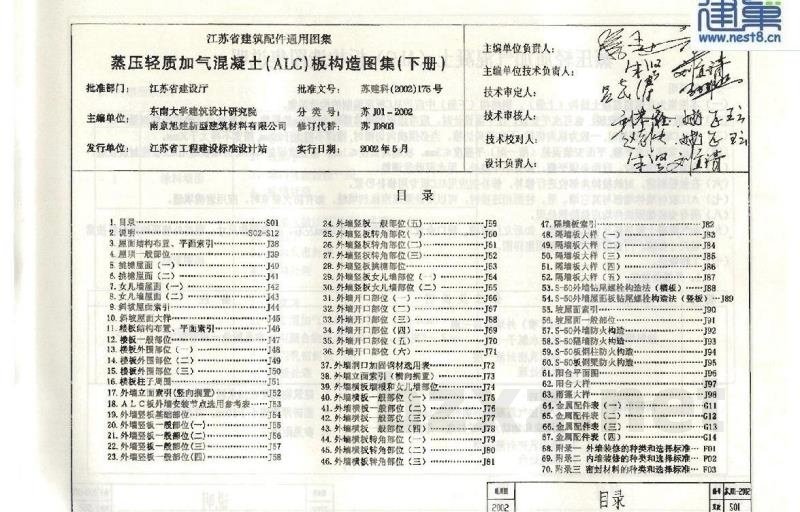 建巢
www.nest8.cn
江苏省建筑配件通用图集
蒸压轻质加气混凝土(ALC)板构造图集(下册)
批准部门： 江苏省建设厅 批准文号： 苏建科(2002)175号
主编单位： 东南大学建筑设计研究院 分类号： 苏J01-2002
南京旭建新型建筑材料有限公司 修订代替： 苏J9803
发行单位： 江苏省工程建设标准设计站 实行日期： 2002年5月
主编单位负责人：
主编单位技术负责人：
技术审定人：
技术审核人：
技术校对人：
设计负责人：
目录
1. 目录 S01
2. 说明 S02-S12
3. 屋面结构布置、平面索引 J38
4. 屋顶一般部位 J39
5. 挑檐屋面（一） J40
6. 挑檐屋面（二） J41
7. 女儿墙屋面（一） J42
8. 女儿墙屋面（二） J43
9. 斜坡屋面索引 J44
10. 斜坡屋面大样 J45
11. 楼板结构布置、平面索引 J46
12. 楼板一般部位 J47
13. 楼板外围部位（一） J48
14. 楼板外围部位（二） J49
15. 楼板外围部位（三） J50
16. 楼板柱子周围 J51
17. 外墙立面索引(竖向搁置) J52
18. ALC板外墙安装节点选用参考表 J53
19. 外墙竖板基础部位 J54
20. 外墙竖板一般部位(一) J55
21. 外墙竖板一般部位(二) J56
22. 外墙竖板一般部位(三) J57
23. 外墙竖板一般部位(四) J58
24. 外墙竖板一般部位(五) J59
25. 外墙竖板转角部位（一） J60
26. 外墙竖板转角部位（二） J61
27. 外墙竖板转角部位（三） J62
28. 外墙竖板挑檐部位 J63
29. 外墙竖板女儿墙部位（一） J64
30. 外墙竖板女儿墙部位（二） J65
31. 外墙开口部位（一） J66
32. 外墙开口部位（二） J67
33. 外墙开口部位（三） J68
34. 外墙开口部位（四） J69
35. 外墙开口部位（五） J70
36. 外墙开口部位（六） J71
37. 外墙洞口加固钢材选用表 J72
38. 外墙立面索引（横向搁置） J73
39. 外墙横板墙根和女儿墙部位 J74
40. 外墙横板一般部位（一） J75
41. 外墙横板一般部位（二） J76
42. 外墙横板一般部位（三） J77
43. 外墙横板一般部位（四） J78
44. 外墙横板转角部位（一） J79
45. 外墙横板转角部位（二） J80
46. 外墙横板转角部位（三） J81
47. 隔墙板索引 J82
48. 隔墙板大样（一） J83
49. 隔墙板大样（二） J84
50. 隔墙板大样（三） J85
51. 隔墙板大样（四） J86
52. 隔墙板大样（五） J87
53. S-50外墙钻尾螺栓构造法（横板） J88
54. S-50外墙屋面板钻尾螺栓构造法（竖板） J89
55. 坡屋面索引 J90
56. 坡屋面一般部位 J91
57. S-50外墙防火构造 J92
58. S-50隔墙防火构造 J93
59. S-50板钢柱防火构造 J94
60. S-50板钢梁防火构造 J95
61. 阳台平面图 J96
62. 阳台大样 J97
63. 雨篷大样 J98
64. 金属配件表（一） G11
65. 金属配件表（二） G12
66. 金属配件表（三） G13
67. 金属配件表（四） G14
68. 附录一 外墙装修的种类和选择标准 F01
69. 附录二 内墙装修的种类和选择标准 F02
70. 附录三 密封材料的种类和选择标准 F03
2002 目录 苏J01-2002
S01